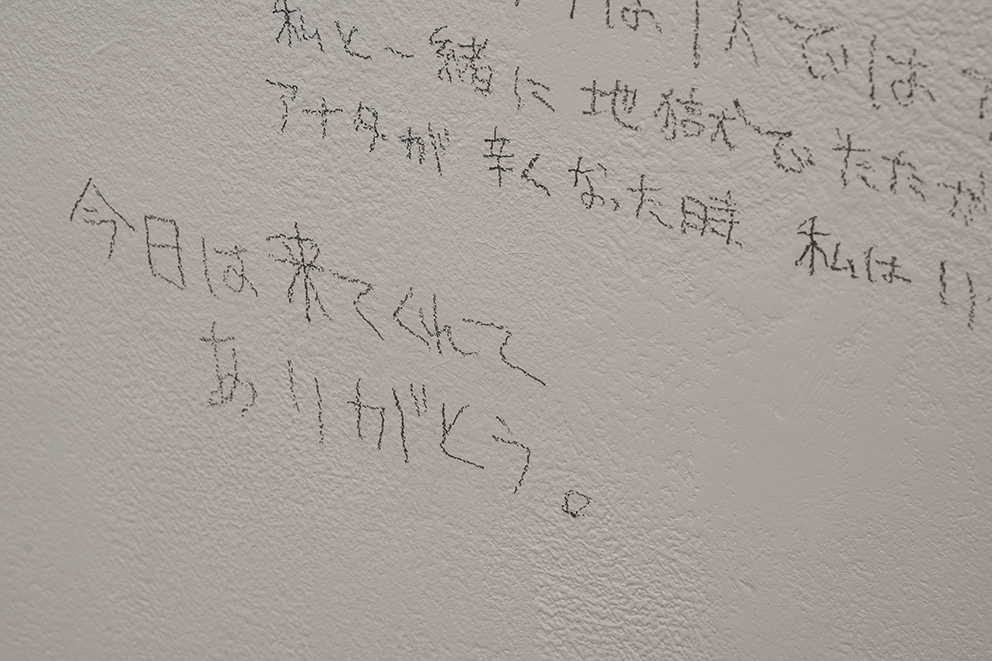 は1人では
私と一緒に地獄でただ
アナタが辛くなった時 私はり
今日は来てくれて
ありがとう。